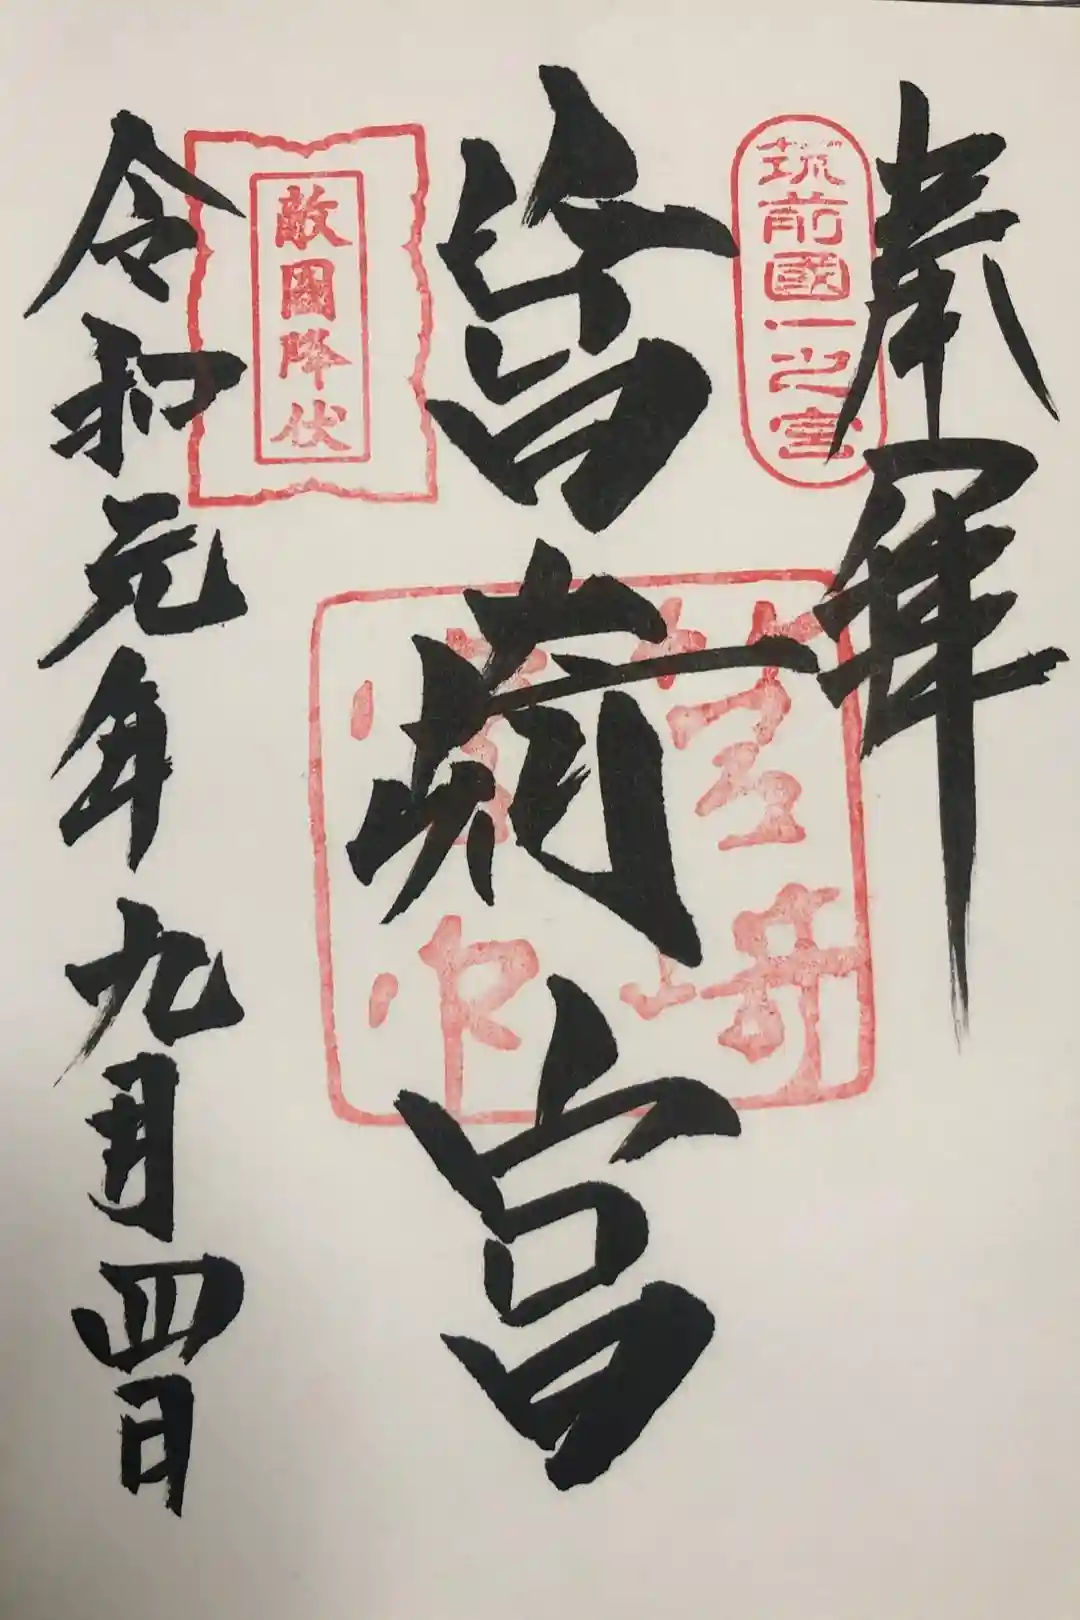 奉拝
筑前國一之宮
筥崎宮
筥崎
敵國降伏
令和元年九月四日